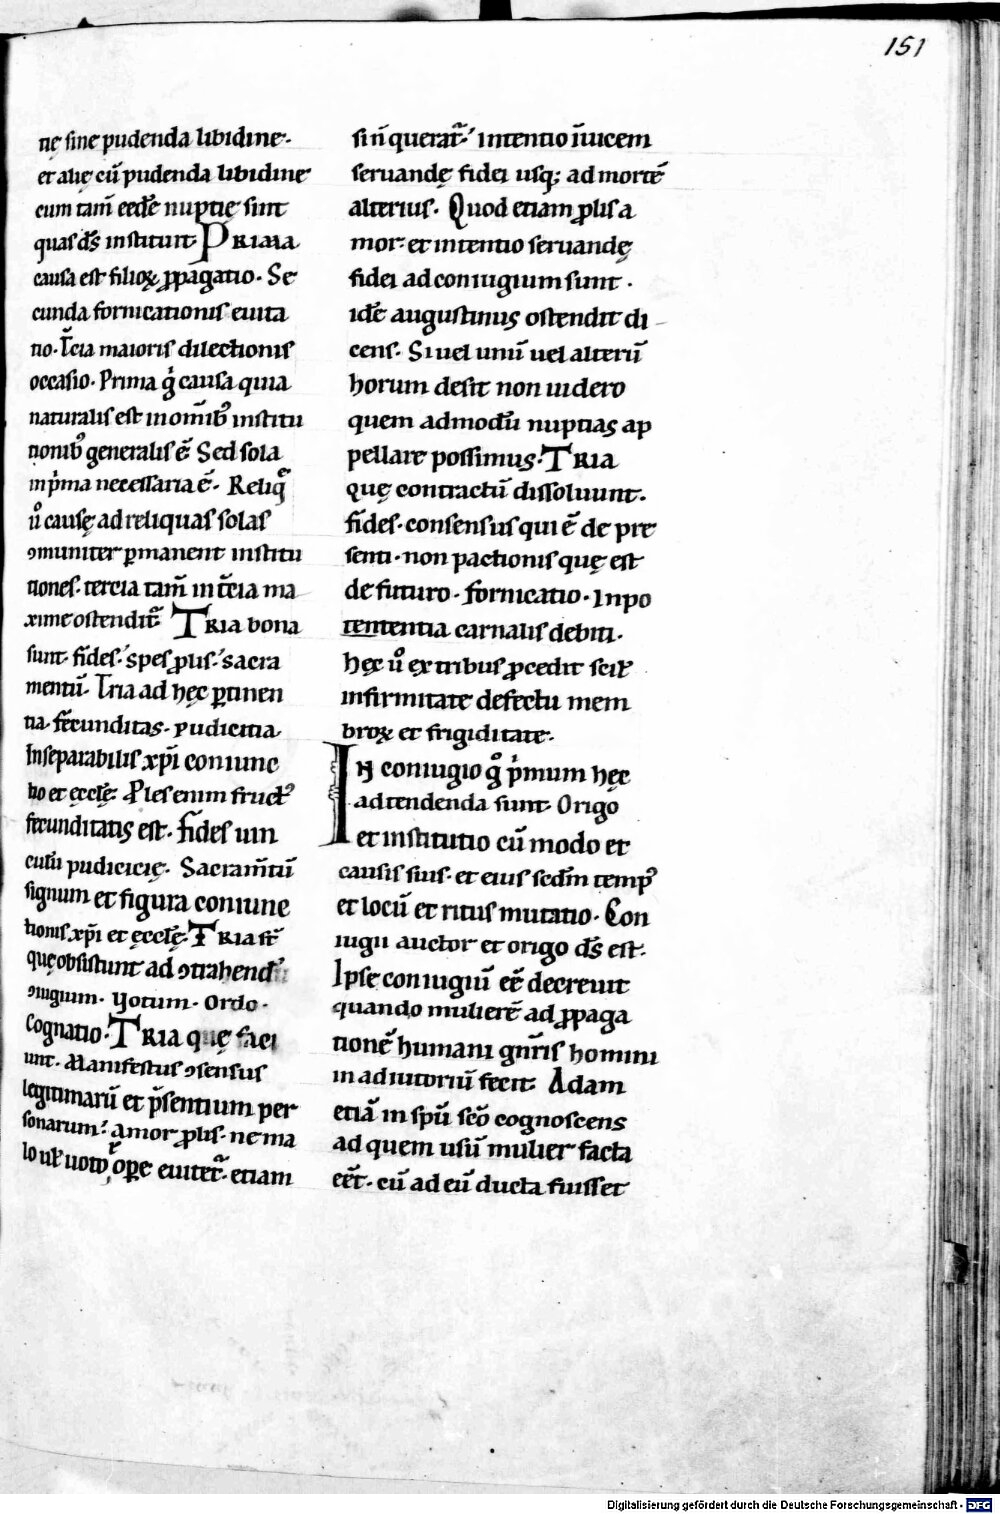 151
nę sine pudenda libidine.
et alię cū pudenda libidine
cum tam̄ eedē nuptię sint
quas dс̄ instituit. PRIMA
causa est filioꝝ ꝓpagatio. Se
cunda fornicationis euita
tio. Tc̄ia maioris dilectionis
occasio. Prima gͥ causa quia
naturalis est in om̄ibꝰ institu
tionibꝰ generalis ē. Sed sola
in pͥma necessaria ē. Reliqͣ
uͦ causę ad reliquas solas
ꝯmuniter ꝑmanent institu
tiones. tercia tam̄ in tc̄ia ma
xime ostendit᷑. TRIA bona
sunt. fides. spes ꝓlis. sacra
mentū. Tria ad hęc ꝑtinen
tia. fecunditas. pudicitia.
Inseparabilis xp̄i coniunc
tio et ęccłę. Ples enim fructꝰ
fecunditatis est. fides uin
culū pudicicię. Sacram̄tū
signum et figura coniunc
tionis. xp̄i et ęccłę. TRIA st̄
quę obsistunt ad ꝯtrahendū
ꝯiugium. Votum. Ordo.
Cognatio. TRIA quę faci
unt. Manifestus ꝯsensus
legitimarū et p̄sentium per
sonarum. amor ꝓlis. ne ma
lo uł uoto, oꝑe euitet᷑. etiam
si n̄ querat᷑. intentio īuicem
seruandę fidei usq; ad mortē
alterius. Quod etiam ꝓlis a
mor et intentio seruandę
fidei ad coniugium sunt.
idē augustinus ostendit di
cens. Si uel unū uel alterū
horum desit non uidero
quem admodū nuptias ap
pellare possimus. TRIA
quę contractū dissoluunt.
fides. consensus qui ē de pre
senti. non pactionis quę est
de futuro. fornicatio. Inpo
tententia carnalis debiti.
hęc uͦ ex tribus ꝓcedit scił
infirmitate defectu mem
broꝝ et frigiditate.
IN coniugio gͦ pͥmum hęc
adtendenda sunt. Origo
et institutio cū modo et
causis suis. et eius scdm̄ tempꝰ
et locū et ritus mutatio. Con
iugii auctor et origo dс̄ est.
Ipse coniugiū eē decreuit
quando mulierē ad ꝓpaga
tionē humani gn̄ris homini
in adiutoriū fecit. Adam
etiā in sp̄u sc̄o cognoscens
ad quem usū mulier facta
eēt. cū ad eū ducta fuisset
Digitalisierung gefördert durch die Deutsche Forschungsgemeinschaft - DFG